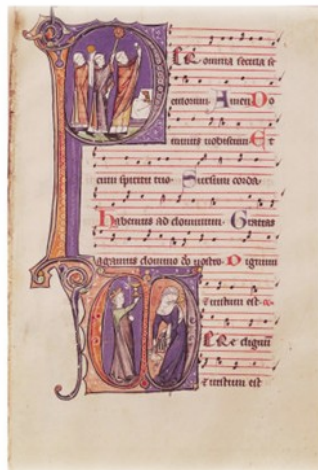 PER omnia secula se
culorum. Amen Do
minus uobiscum Et
cum spiritu tuo. Sursum corda.
habemus ad dominum. Gratias
agamus domino do nostro. Dignum
& iustum est.
VERe dignū
& iustum est